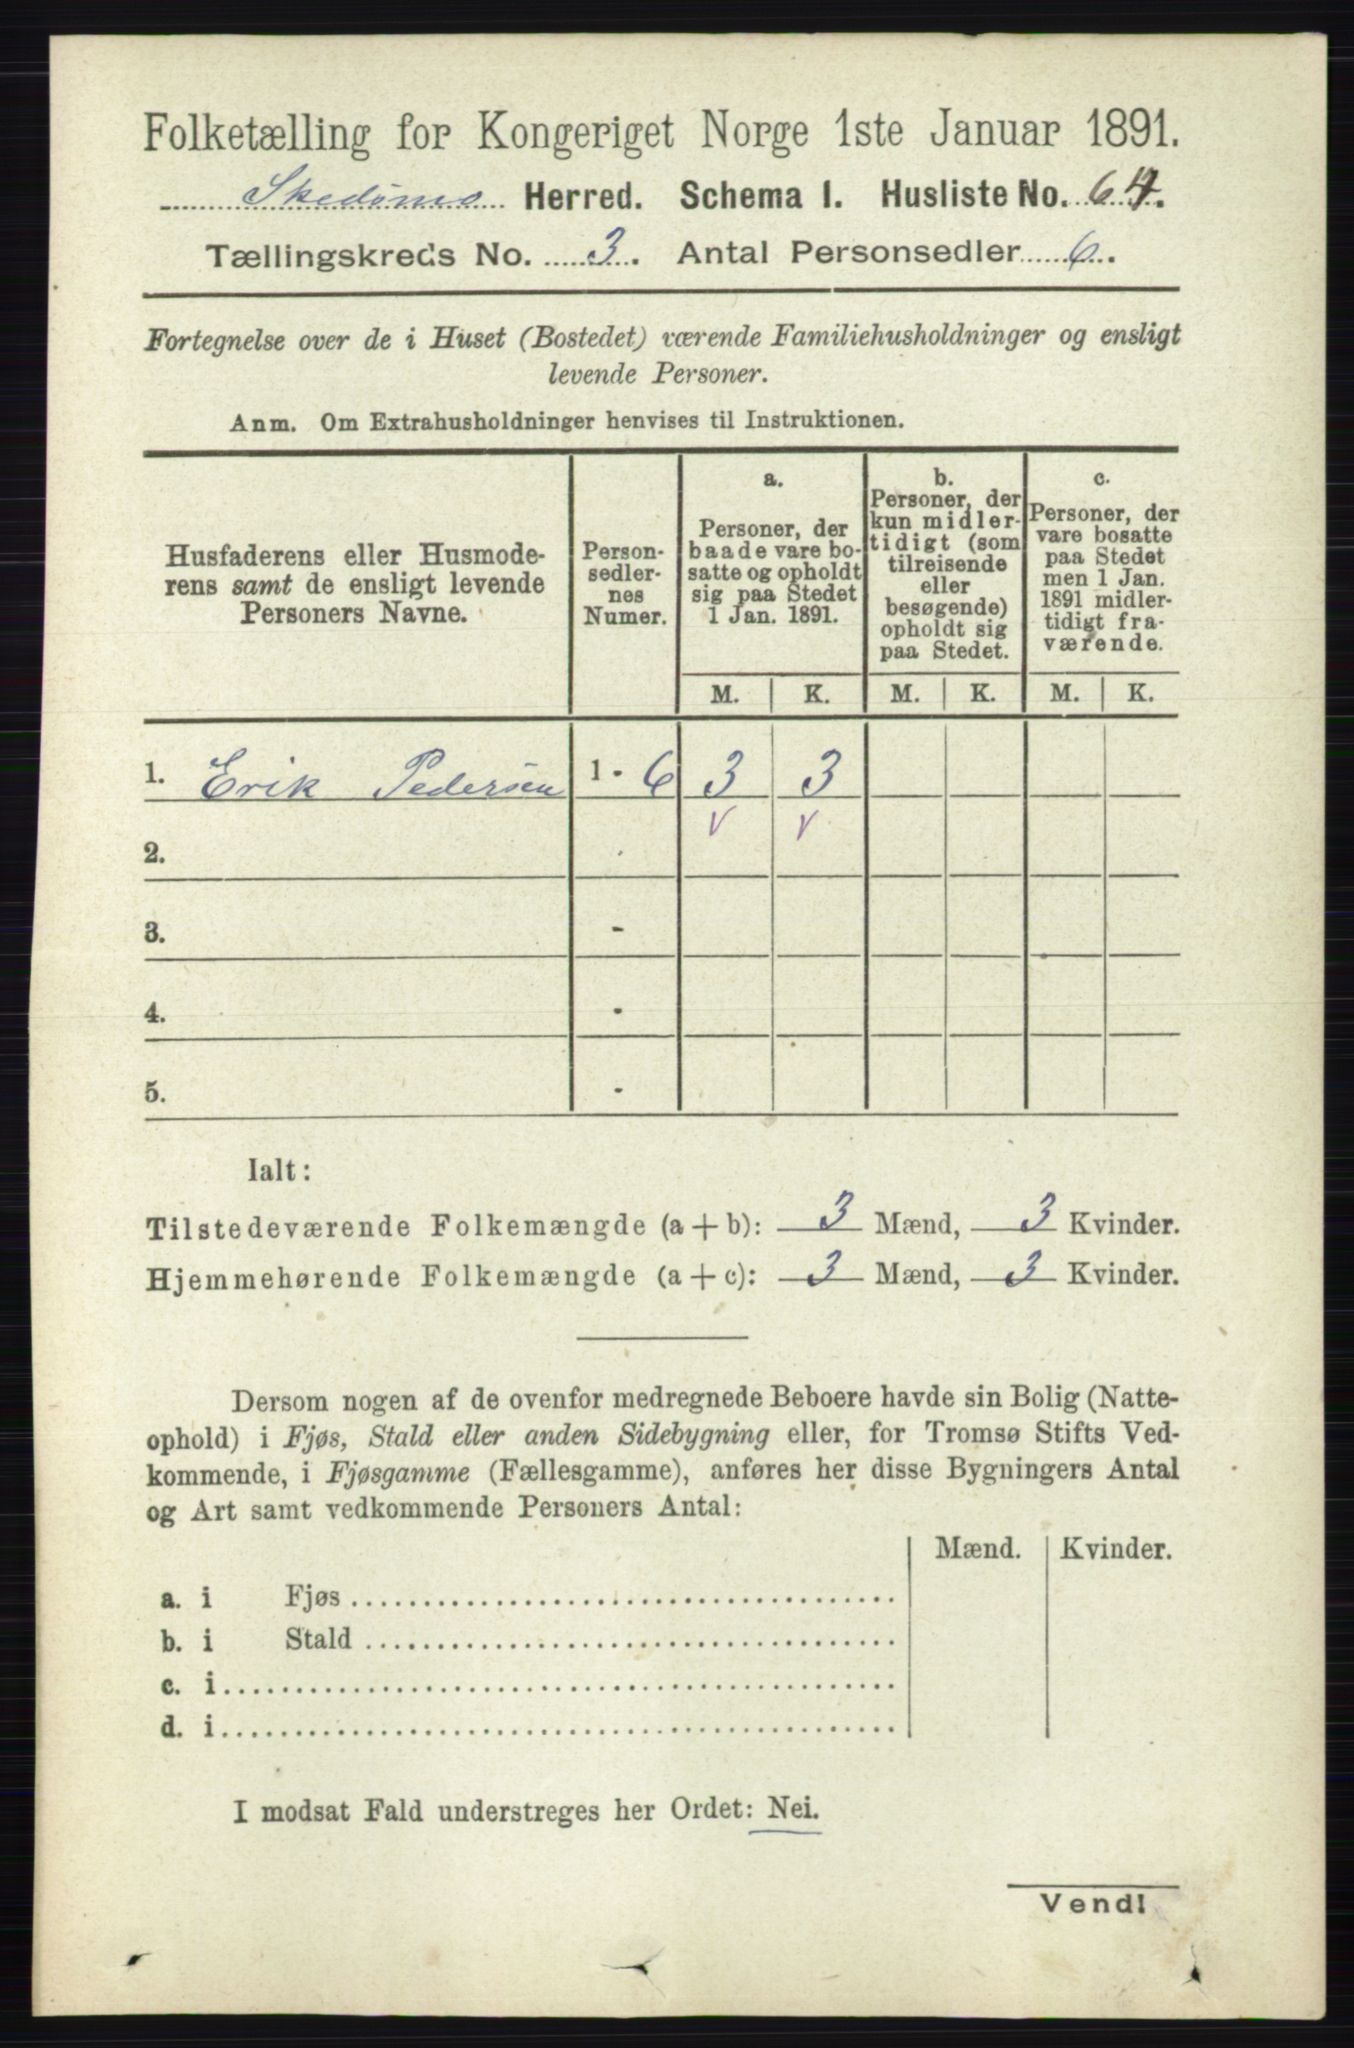 Folketælling for Kongeriget Norge 1ste Januar 1891.
Skedsmo Herred. Schema I. Husliste No. 64.
Tællingskreds No. 3. Antal Personsedler 6.
Fortegnelse over de i Huset (Bostedet) værende Familiehusholdninger og ensligt
levende Personer.
Anm. Om Extrahusholdninger henvises til Instruktionen.
Husfaderens eller Husmode-
rens samt de ensligt levende
Personers Navne.
Person-
sedler-
nes
Numer.
a.
Personer, der
baade vare bo-
satte og opholdt
sig paa Stedet
1 Jan. 1891.
b.
Personer, der
kun midler-
tidigt (som
tilreisende
eller
besøgende)
opholdt sig
paa Stedet.
c.
Personer, der
vare bosatte
paa Stedet
men 1 Jan.
1891 midler-
tidigt fra-
værende.
M. K. M. K. M. K.
1. Erik Pedersen 1 - 6 3 3
v v
2.
3. -
4. -
5. -
Ialt:
Tilstedeværende Folkemængde (a + b): 3 Mænd, 3 Kvinder.
Hjemmehørende Folkemængde (a + c): 3 Mænd, 3 Kvinder.
Dersom nogen af de ovenfor medregnede Beboere havde sin Bolig (Natte-
ophold) i Fjøs, Stald eller anden Sidebygning eller, for Tromsø Stifts Ved-
kommende, i Fjøsgamme (Fællesgamme), anføres her disse Bygningers Antal
og Art samt vedkommende Personers Antal:
Mænd. Kvinder.
a. i Fjøs
b. i Stald
c. i
d. i
I modsat Fald understreges her Ordet: Nei.
Vend!